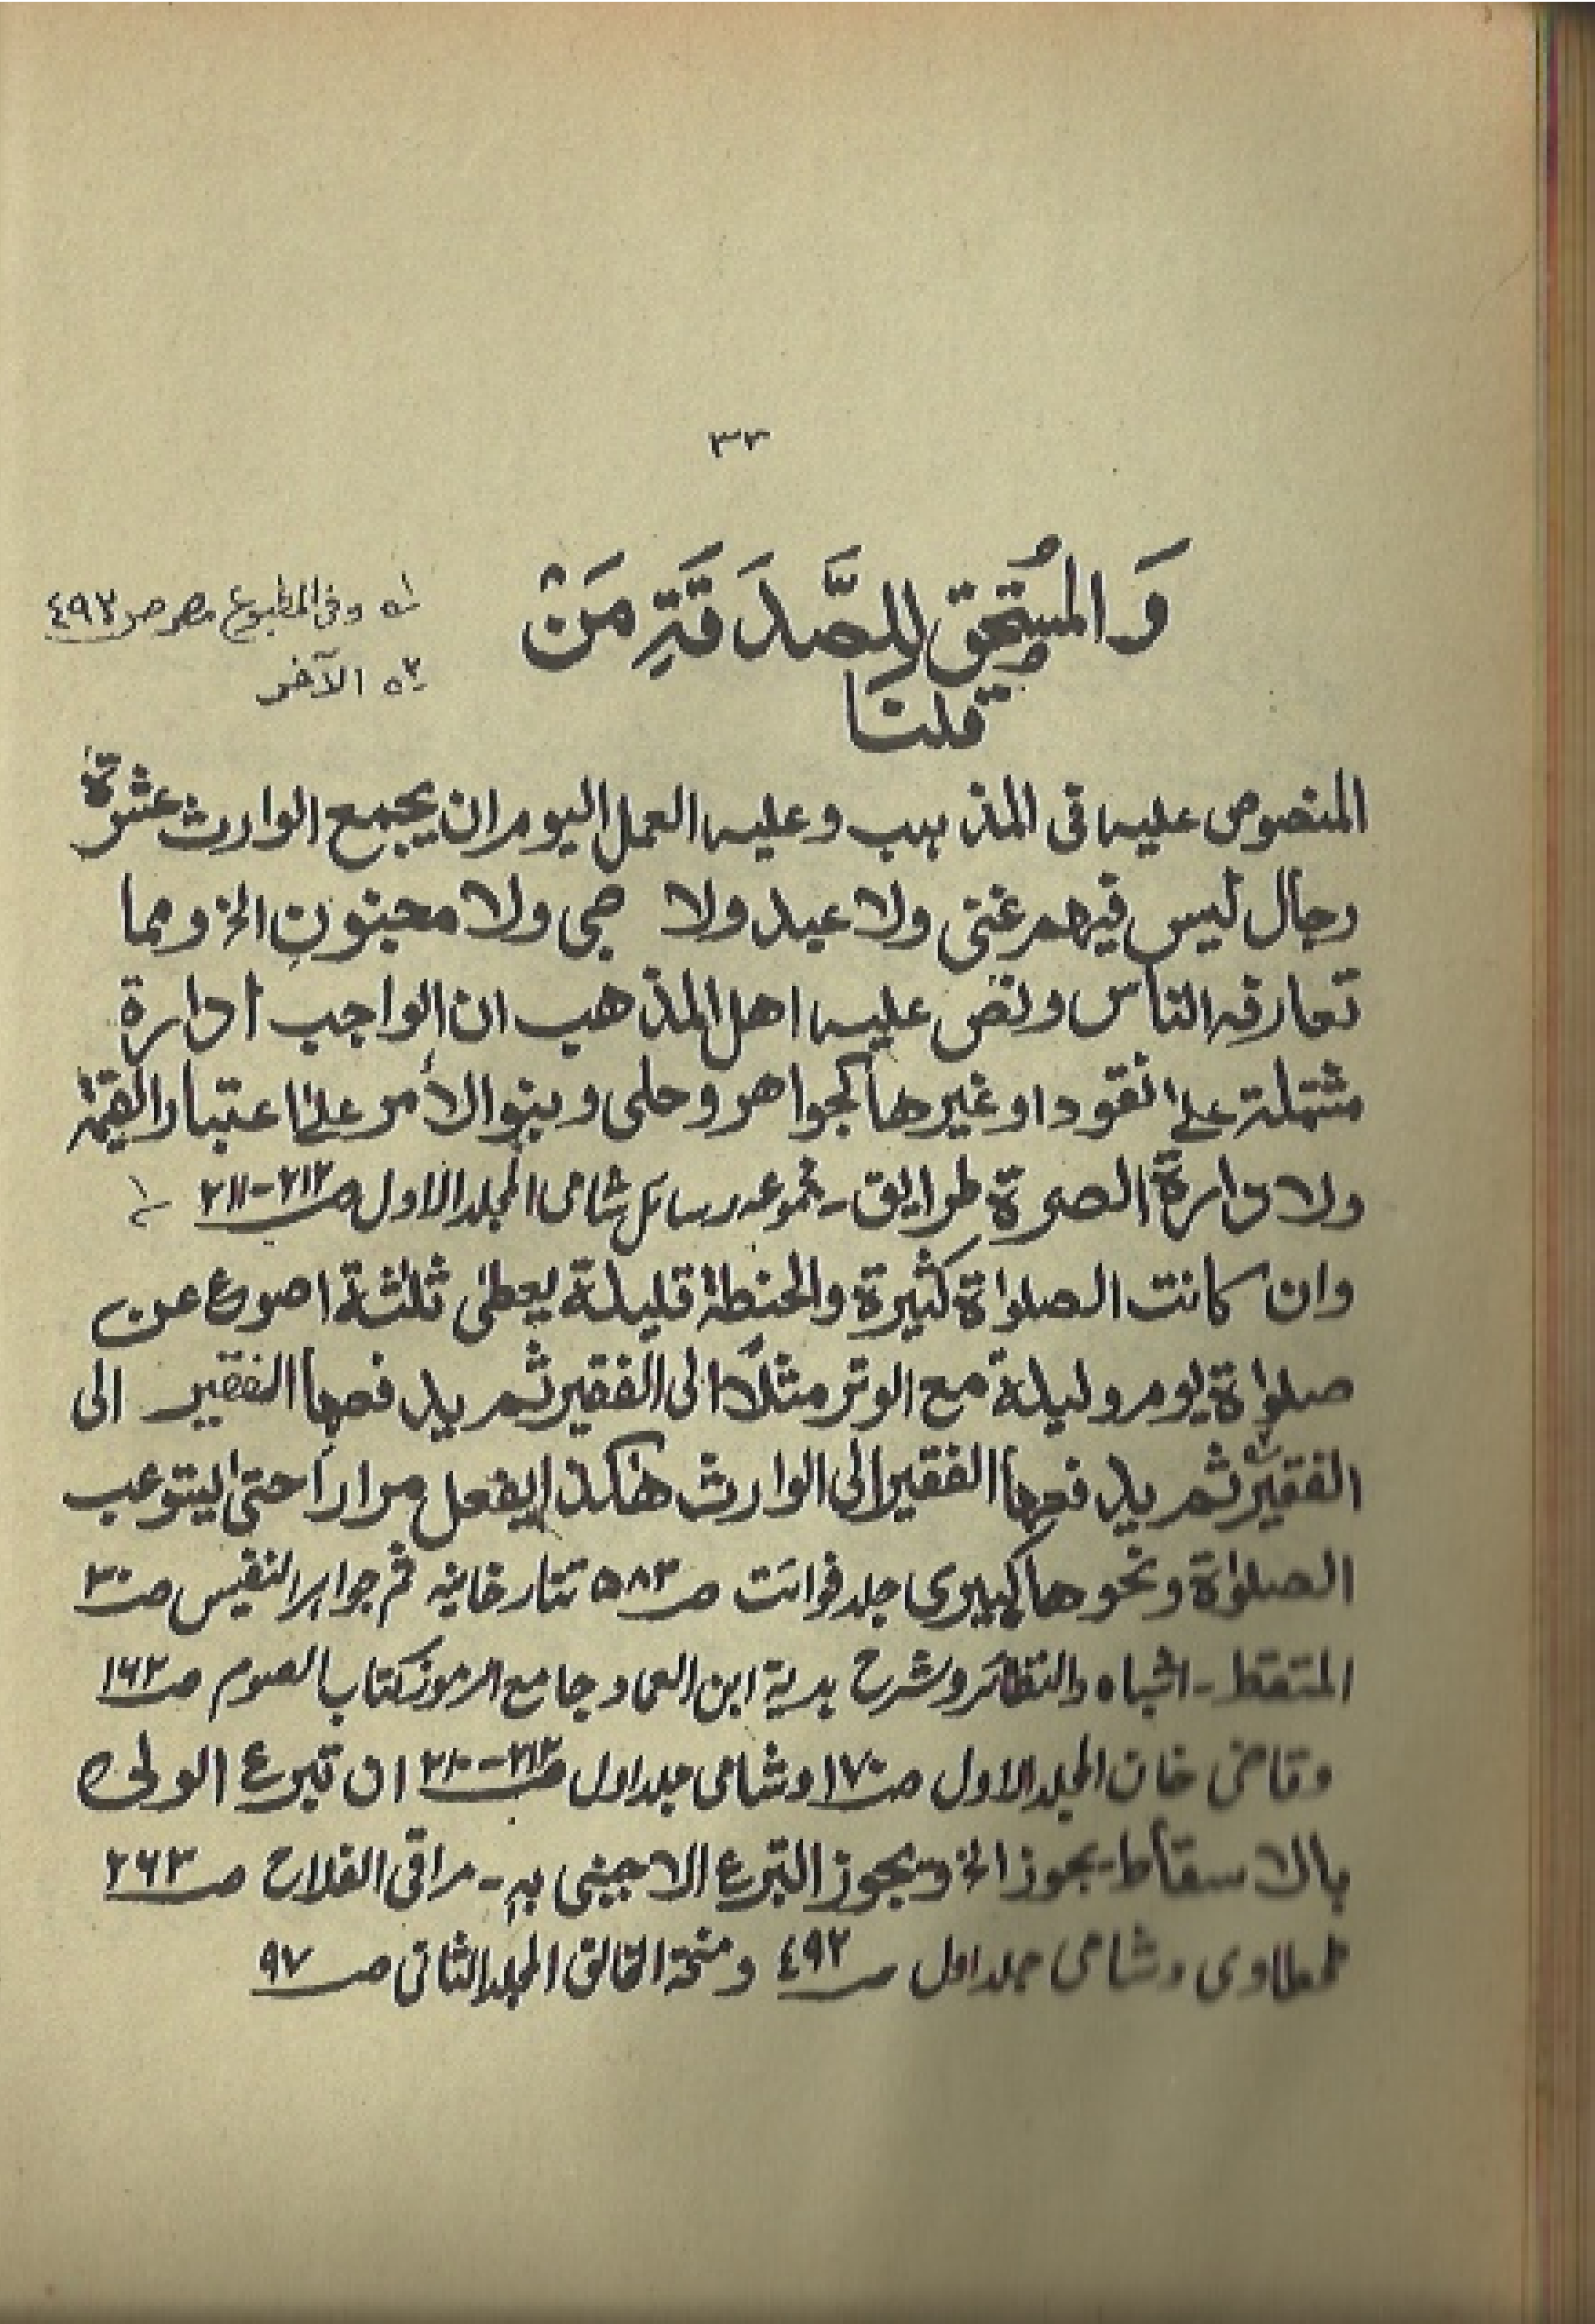 ٣٣
وَالمُسْتَحِقُّ لِلصَّدَقَةِ مَنْ
قلنا
١ه وفى المطبوع مصر ص ٤٩٢
٢ه الآخر
المنصوص عليه فى المذهب وعليه العمل اليوم ان يجمع الوارث عشرة
رجال ليس فيهم غنى ولا عبد ولا صبى ولا مجنون الخ ومما
تعارفه الناس ونص عليه اهل المذهب ان الواجب ادارة
مشتملة على نقود او غيرها كجواهر وحلى وبنو الأمر على اعتبار القيمة
ولادارة الصرة طرايق - مجموعه رسائل شامى المجلد الاول صـ ٢١٢-٢١١ ١ه
وان كانت الصلوٰة كثيرة والحنطة قليلة يعطى ثلثة اصوع عن
صلوٰة يوم وليلة مع الوتر مثلاً الى الفقير ثم يدفعها الفقير الى
الفقير ٢ه ثم يدفعها الفقير الى الوارث هٰكذا يفعل مراراً حتى يستوعب
الصلوٰة ونحوها كبيرى جلد فوائت صـ ٥٨٣ تتارخانيه ثم جواهر النفيس صـ ٣٠
المتقط - اشباه والنظائر وشرح هدية ابن العماد جامع الرموز كتاب الصوم صـ ١٦٢
وقاضى خان المجلد الاول صـ ١٧٠ وشامى جلد اول صـ ٢١٢-٢١٠ ان تبرع الولى
بالاسقاط يجوز الخ ويجوز التبرع الاجنبى به - مراقى الفلاح صـ ٢٦٣
طحطاوى وشامى جلد اول صـ ٤٩٢ ومنحة الخالق المجلد الثانى صـ ٩٧